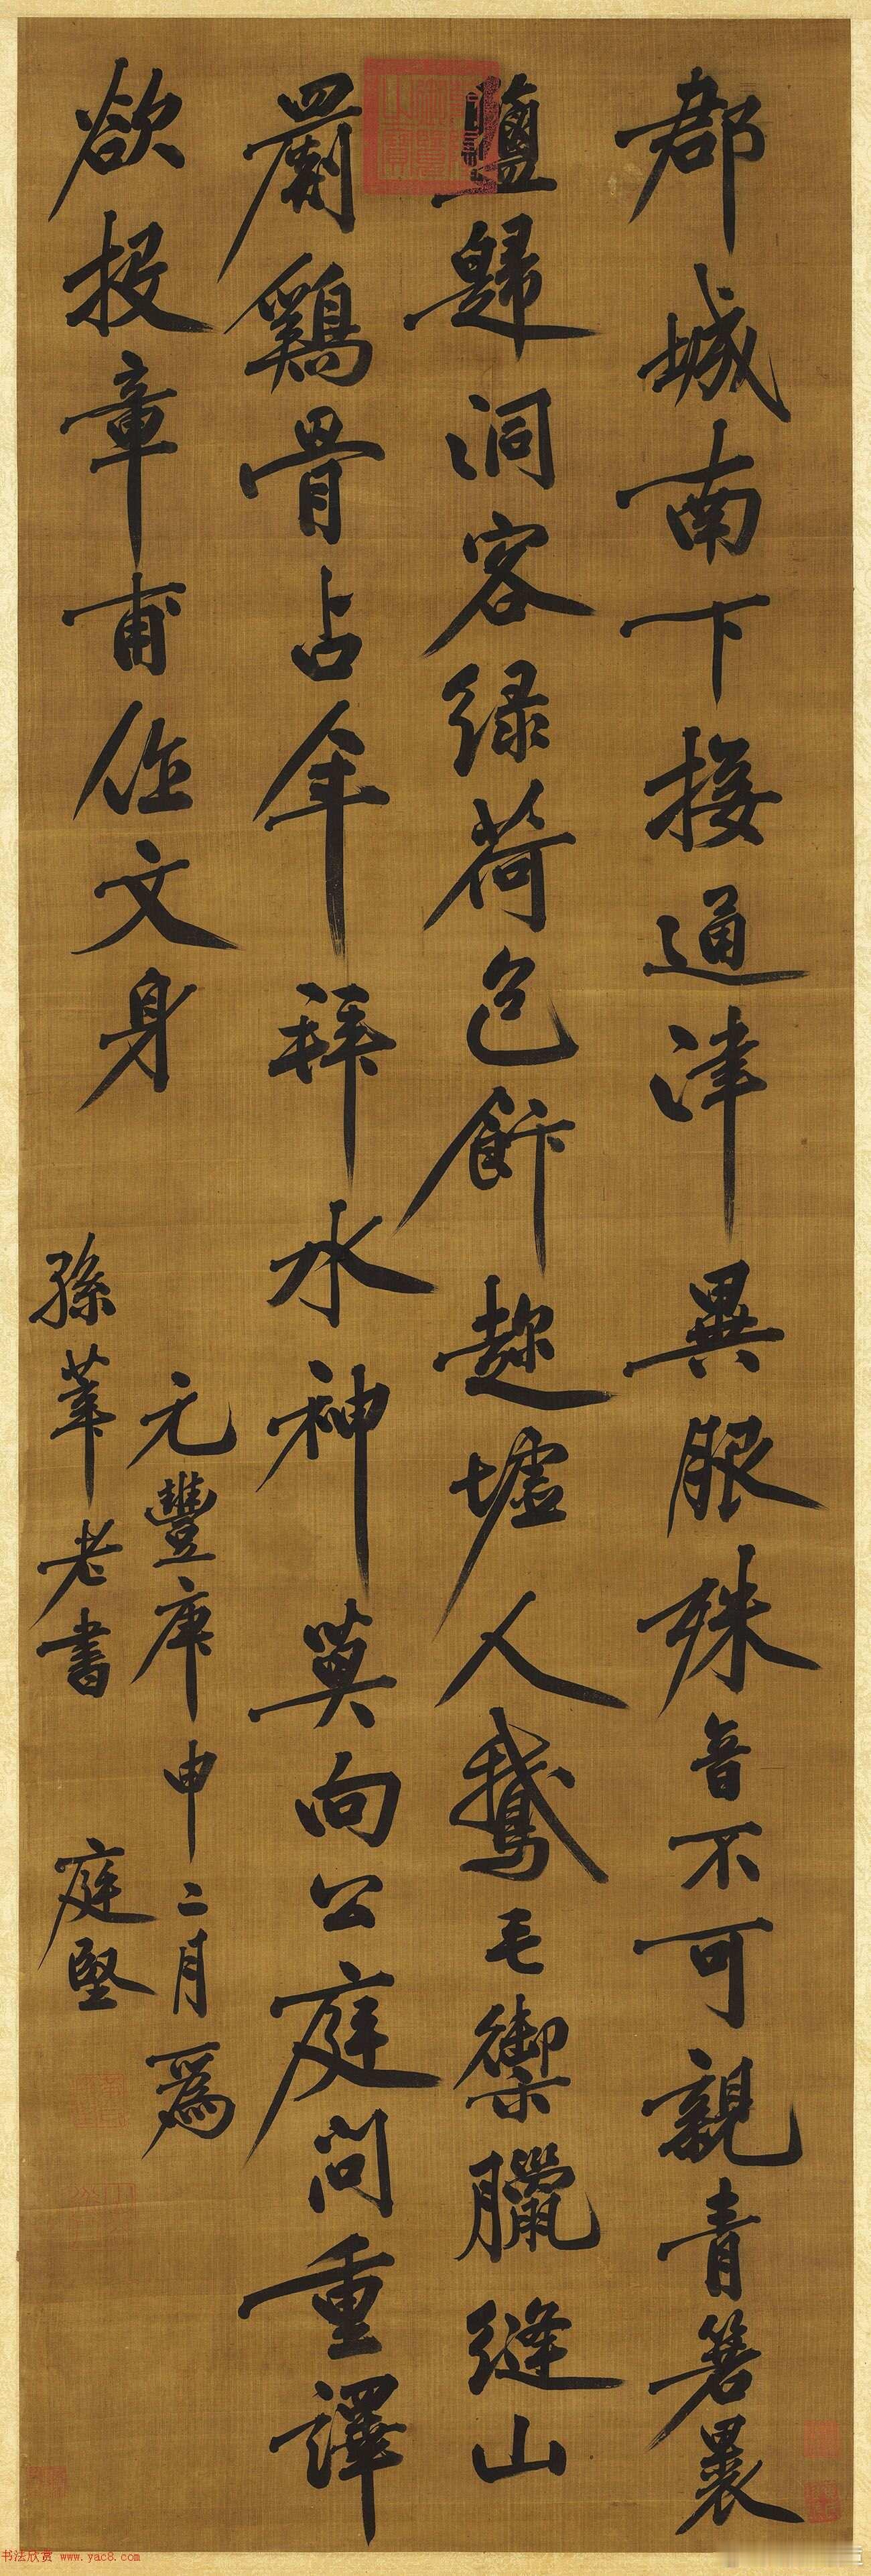 郡城南下接通津異服殊音不可親青箬裹
鹽歸洞客綠荷包飯趂墟人鵝毛御臘縫山
罽鷄骨占年拜水神莫向公庭問重譯
欲投章甫作文身
元豐庚申二月為
孫莘老書 庭堅
书法欣赏 www.yac8.com